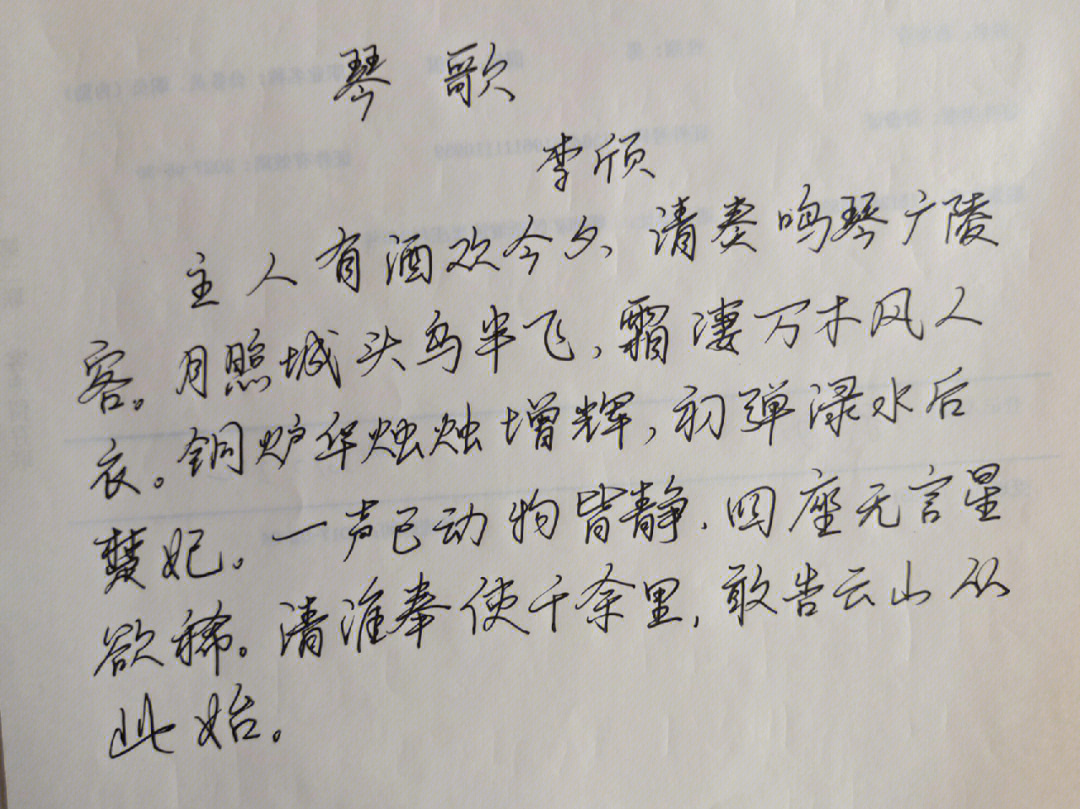 琴歌
李颀
主人有酒欢今夕、请奏鸣琴广陵
客。月照城头乌半飞,霜凄万木风入
衣。铜炉华烛烛增辉,初弹渌水后
楚妃。一声已动物皆静,四座无言星
欲稀。清淮奉使千余里,敢告云山从
此始。